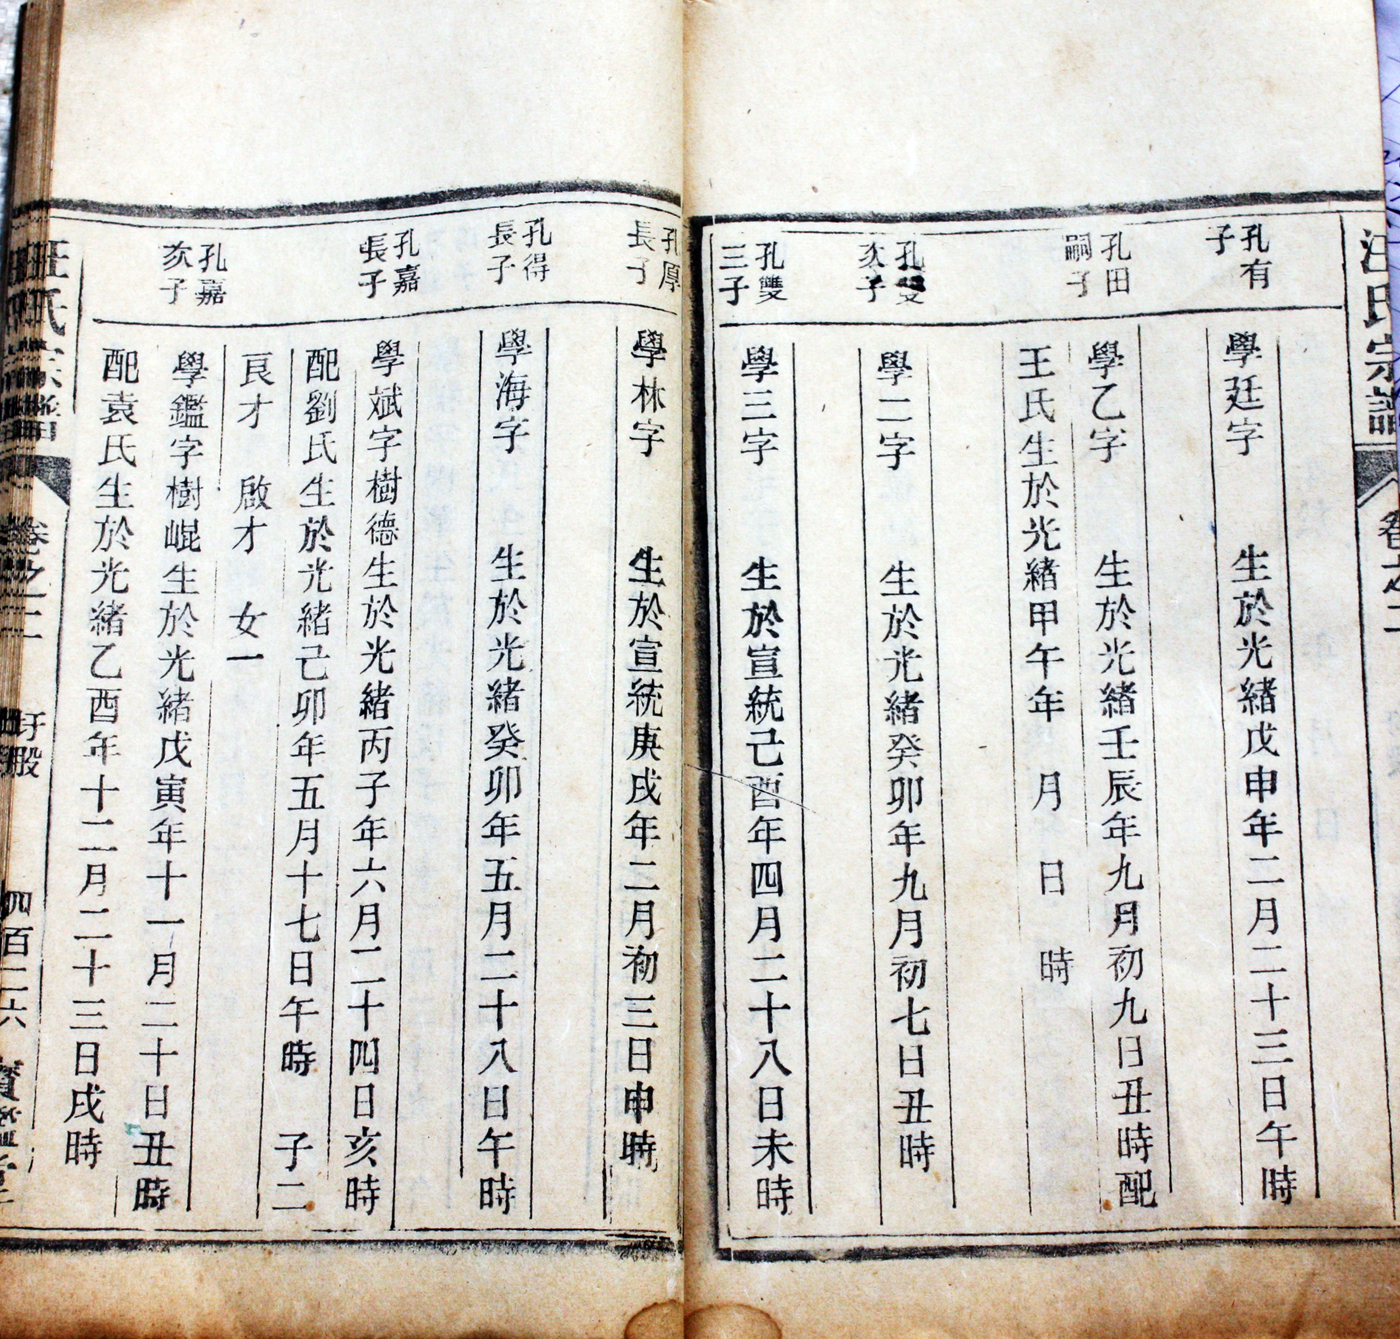 汪氏宗譜
卷之二
孔有
子
學廷字 生於光緒戊申年二月二十三日午時
孔田
嗣子
學乙字 生於光緒壬辰年九月初九日丑時配
王氏生於光緒甲午年 月 日 時
孔雙
次子
學二字 生於光緒癸卯年九月初七日丑時
孔雙
三子
學三字 生於宣統己酉年四月二十八日未時
孔厚
長子
學林字 生於宣統庚戌年二月初三日申時
孔得
長子
學海字 生於光緒癸卯年五月二十八日午時
孔嘉
長子
學斌字樹德生於光緒丙子年六月二十四日亥時
配劉氏生於光緒己卯年五月十七日午時 子二
良才 啟才 女一
孔嘉
次子
學鑑字樹崐生於光緒戊寅年十一月二十日丑時
配袁氏生於光緒乙酉年十二月二十三日戌時
汪氏宗譜 卷之二